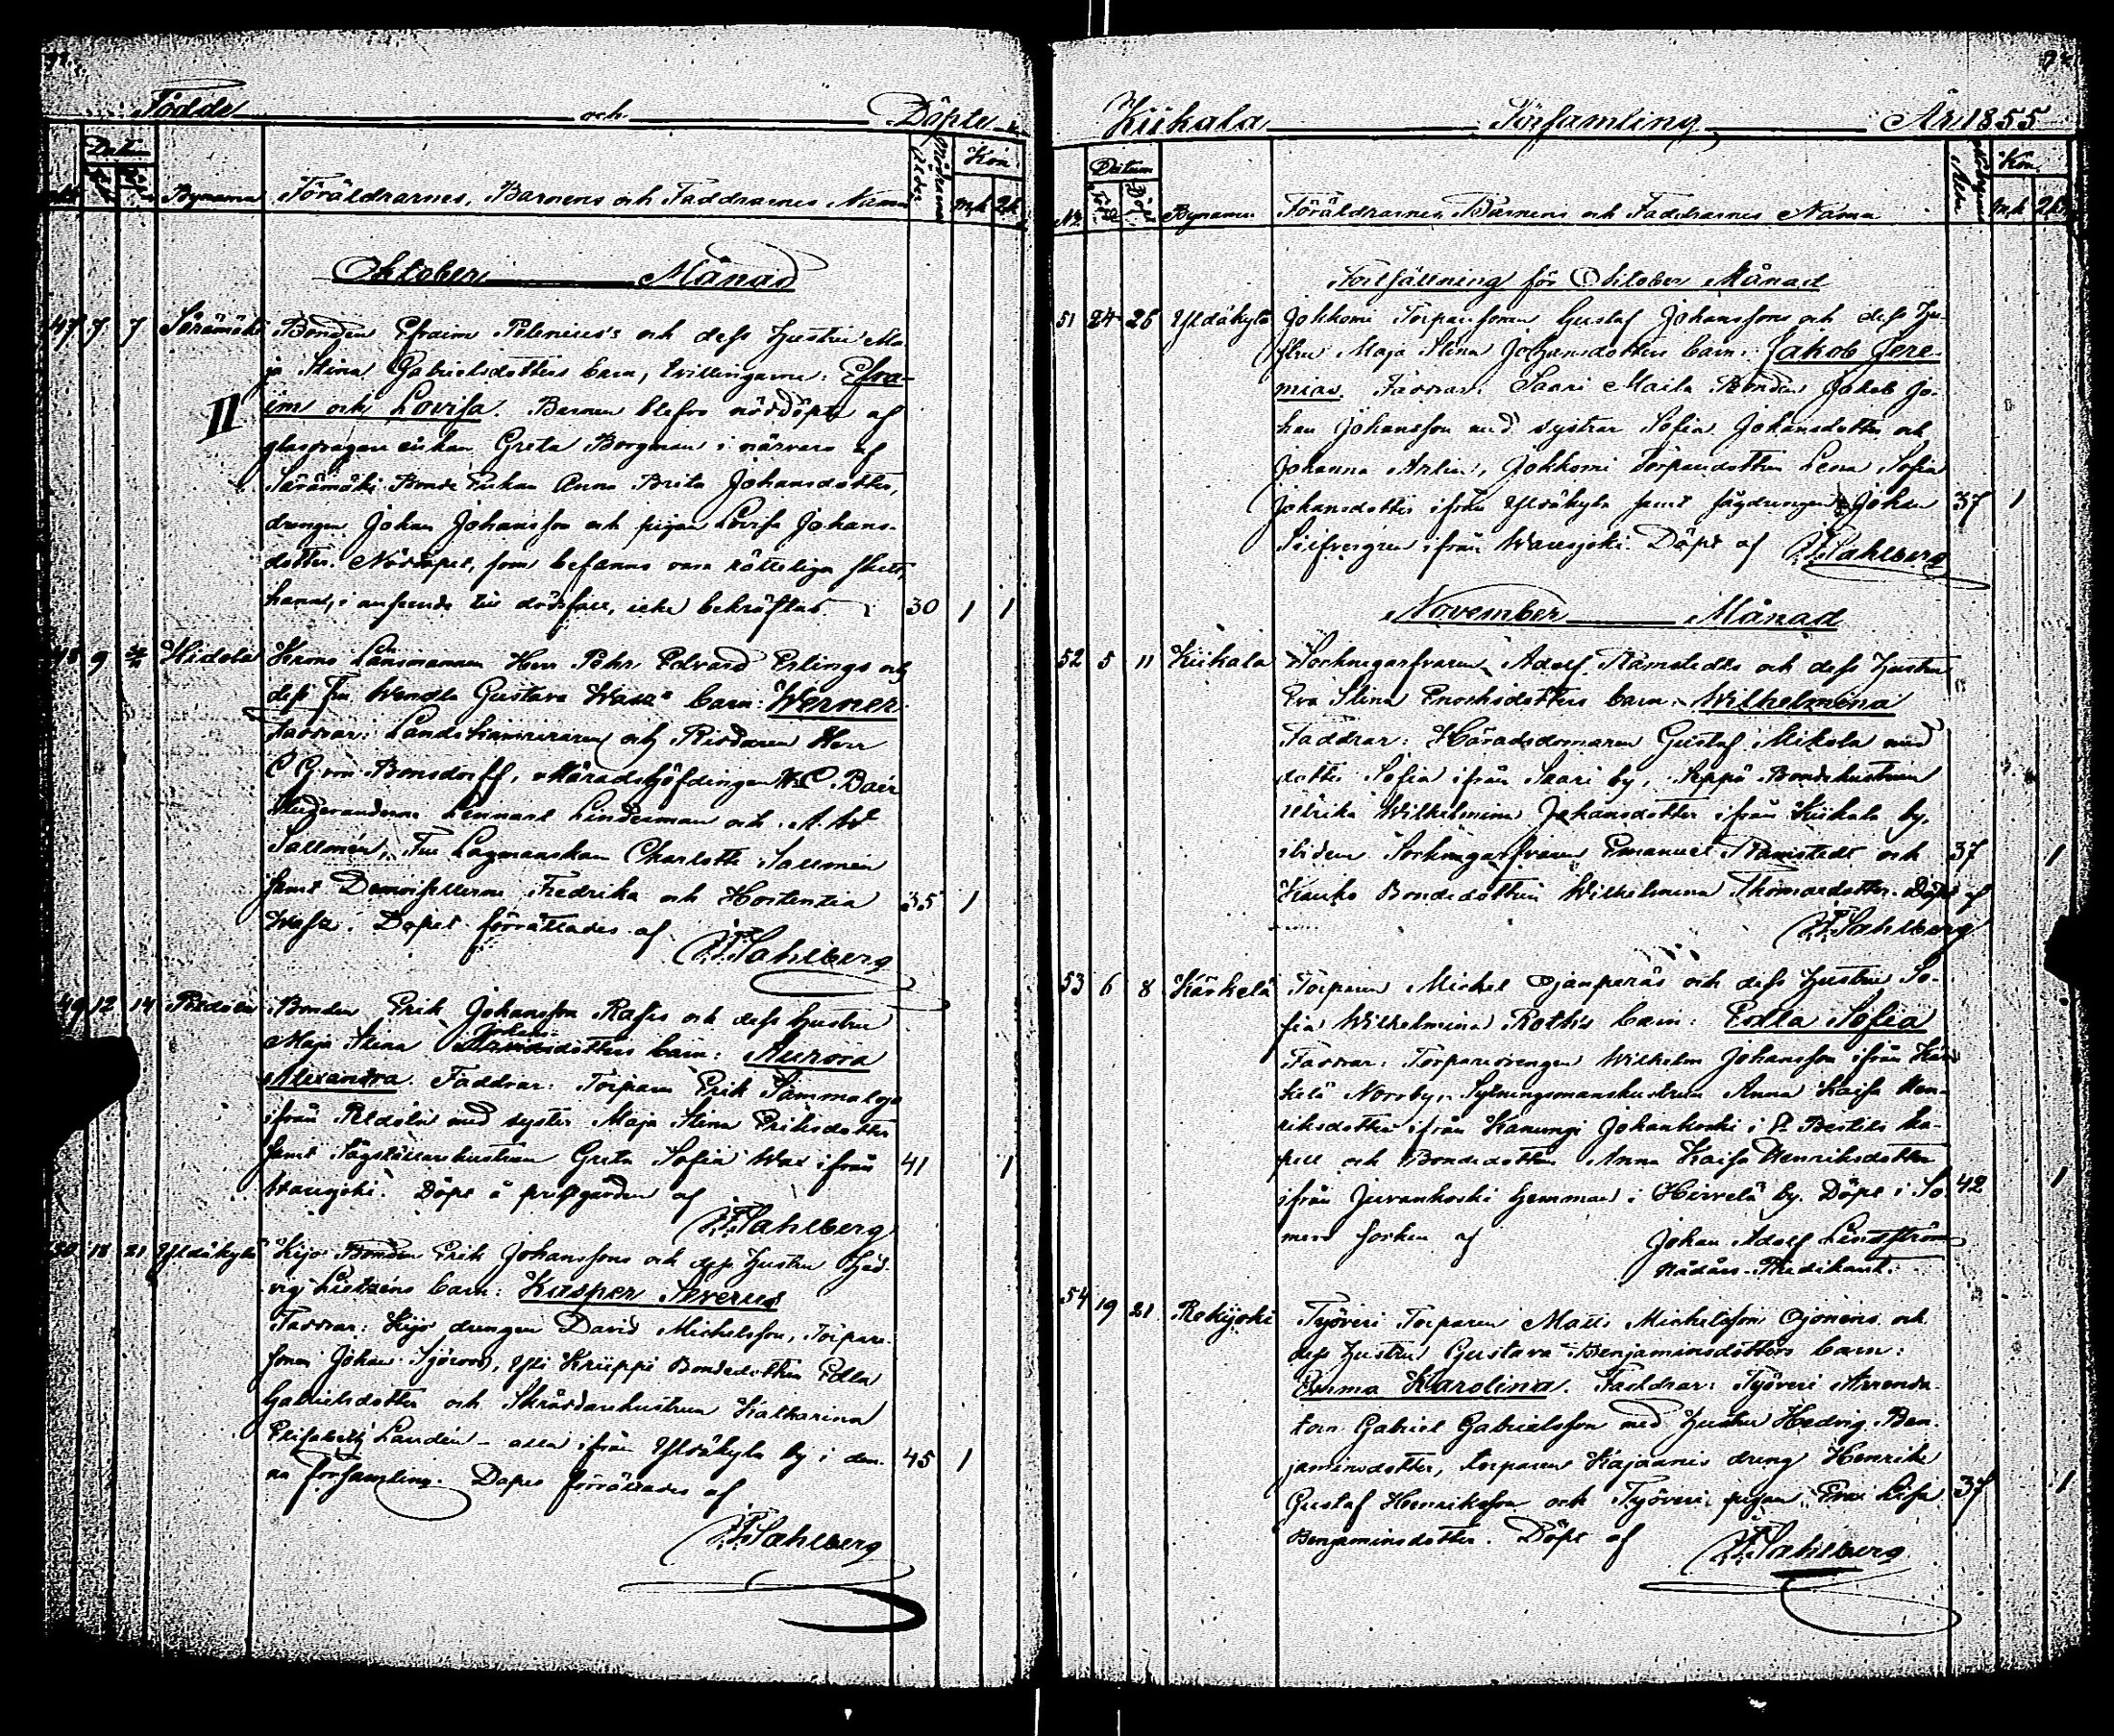 Födde och Döpte
Datum
Kön
Bynamn Föräldrarnes, Barnens och Faddrarnes Namn M.k Q.k
Oktober Månad
47 7 7 Särämäki Bonden Efraim Pelenius's och dess Hustru Ma-
ja Stina Gabrielsdotters barn, tvillingarne: Efra-
II im och Lovisa. Barnen blefvo nöddöpte af
enkan Greta Borgman i närvaro af
Särämäki Bonde Enkan Anna Brita Johansdotter,
drengen Johan Johansson och pigan Lovisa Johans-
dotter. Nöddopet, som befanns vara rätteligen skett,
i anseende till dödsfall, icke bekräftas 30 1 1
48 9 Hidola Krono Länsmannen Herr Pehr Edvard Erlings och
dess Fru Wendla Gustava barn: Werner.
Faddrar: Landskamreraren och Riddaren Herr
C G von Bonsdorff, Häradshöfdingen W. C. Baer
Studeranderne Lennart Linderman och A. W.
Sallmén, Fru Lagmanskan Charlotte Sallmén
samt Demoisellerne Fredrika och Hortensia 35 1
Dopet förrättades af
F. Sahlberg
49 12 14 Bonden Erik Johansson Rasis och dess hustru
Johans-
Maja Stina dotters barn: Aurora
Alexandra. Faddrar: Torparen Erik Sammaljo
ifrån med syster Maja Stina Eriksdotter
samt Sågställarehustrun Greta Sofia ifrån 41 1
Döpt å prestgården af
F. Sahlberg
50 18 21 Yltäkylä Kijo Bonden Erik Johanssons och dess Hustru Hed-
vig barn: Kasper Severus
Faddrar: Kijo drengen David Michelsson, Torpare-
sonen Johan Sjöroos, Yli Knuppi Bondedottren Edla
Gabrielsdotter och Skräddarehustrun Katharina
Elisabeth Landén - alla ifrån Yltäkylä by i den- 45 1
na församling. Dopet förrättades af
F. Sahlberg
Kiikala Församling År 1855
Datum
Kön
No Född Döpt Bynamn Föräldrarnes, Barnens och Faddrarnes Namn M.k Q.k
Fortsättning för Oktober Månad
51 24 26 Yltäkylä Jokkomi Torparesonen Gustaf Johanssons och dess Hu-
stru Maja Stina Johansdotters barn: Jakob Jere-
mias. Faddrar: Saari Maila Bonden Jakob Jo-
han Johansson med systrar Sofia Johansdotter och
Johanna, Jokkomi Torparedottren Lena Sofia
Johansdotter ifrån Yltäkylä samt sågdrengen Johan 37 1
Silfvergren ifrån Döpt af F. Sahlberg
November Månad
52 5 11 Kiikala Socknegarfvaren Adolf Ramstedts och dess Hustru
Eva Stina Enocksdotters barn: Wilhelmina
Faddrar: Häradsdomaren Gustaf Mikola med
dotter Sofia ifrån Saari by, Seppä Bondehustrun
Ulrika Wilhelmina Johansdotter ifrån Kiikala by,
ibidem Sockne garfvaren Emanuel Ramstedt och 37 1
Bondedottren Wilhelmina Thomasdotter. Döpt af
F. Sahlberg
53 6 8 Kärkelä Torparen Michel Ojanperäs och dess Hustru So-
fia Wilhelmina Roths barn: Edla Sofia
Faddrar: Torparedrengen Wilhelm Johansson ifrån Kär-
kelä Norrby, Sytningsmanshustrun Anna Kaisa Hen-
riksdotter ifrån Johankoski i St Bertils ka-
pell och Bondedottren Anna Kaisa Henriksdotter
ifrån Juvankoski hemman i Hirvelä by. Döpt i So- 42 1
mero socken af Johan Adolf Lindström
Nådårs-Predikant.
54 19 21 Rekijoki Työveri Torparen Matts Michelsson Ojonens och
dess Hustru Gustava Benjaminsdotters barn:
Emma Karolina. Faddrar: Työveri Arrenda-
torn Gabriel Gabrielsson med Hustru Hedvig Ben-
jaminsdotter, torparen Kajaanis dreng Henrik
Gustaf Henriksson och Työveri pigan Eva Lisa 37 1
Benjaminsdotter. Döpt af F. Sahlberg